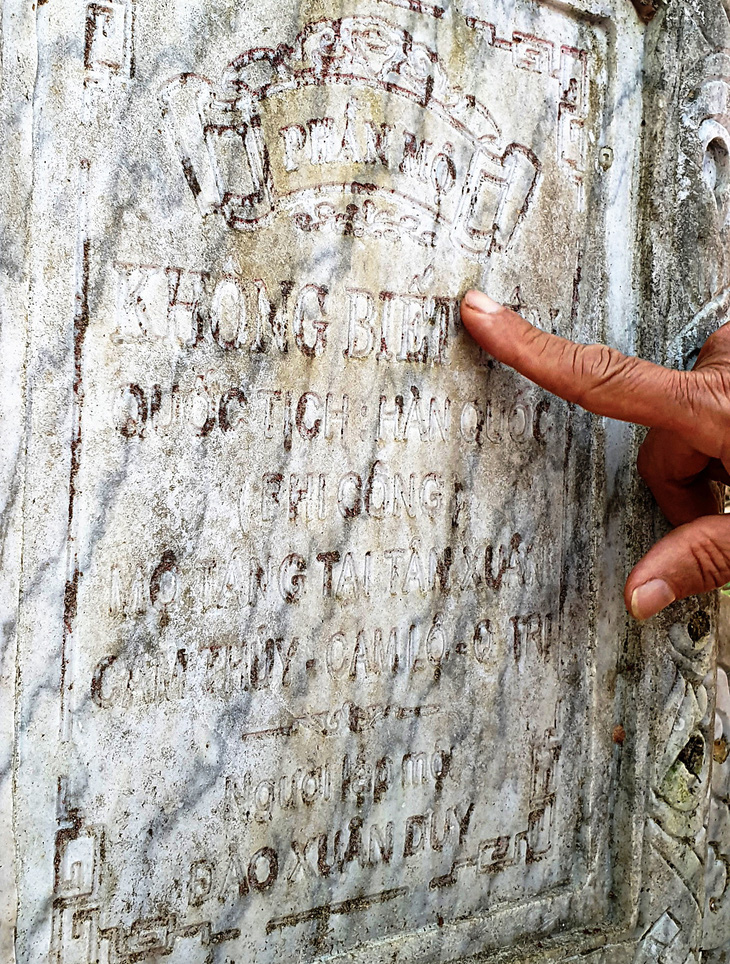 PHẦN MỘ
KHÔNG BIẾT TÊN
QUỐC TỊCH : HÀN QUỐC
( PHI CÔNG )
MỘ TÁNG TẠI TÂN XUÂN
CAM THỦY - CAM LỘ - Q TRỊ
Người lập mộ
ĐÀO XUÂN DUY